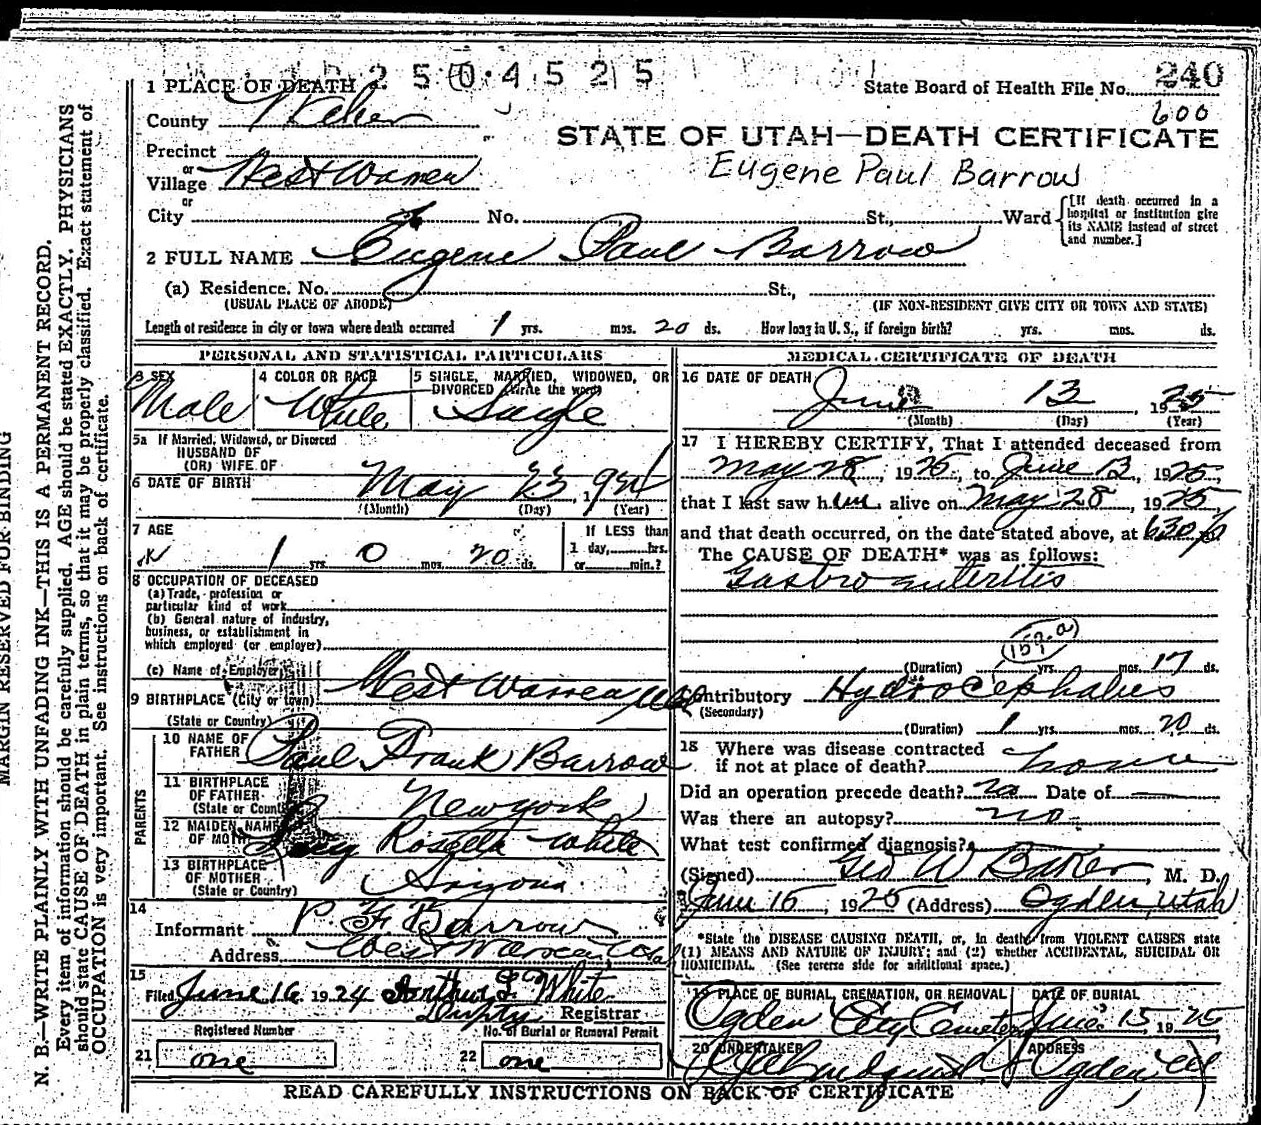 2 5 0 4 5 2 5
240
1 PLACE OF DEATH
State Board of Health File No.
600
County Weber
STATE OF UTAH—DEATH CERTIFICATE
Precinct
Eugene Paul Barrow
or
Village West Warren
or
City No. St., Ward
[If death occurred in a
hospital or institution give
its NAME instead of street
and number.]
2 FULL NAME Eugene Paul Barrow
(a) Residence. No. St.,
(USUAL PLACE OF ABODE) (IF NON-RESIDENT GIVE CITY OR TOWN AND STATE)
Length of residence in city or town where death occurred 1 yrs. mos. 20 ds. How long in U. S., if foreign birth? yrs. mos. ds.
PERSONAL AND STATISTICAL PARTICULARS
3 SEX 4 COLOR OR RACE 5 SINGLE, MARRIED, WIDOWED, OR
DIVORCED (write the word)
Male White Single
5a If Married, Widowed, or Divorced
HUSBAND OF
(OR) WIFE OF
6 DATE OF BIRTH May 23, 1924
(Month) (Day) (Year)
7 AGE If LESS than
1 yrs. 0 mos. 20 ds. 1 day, hrs.
or min.?
8 OCCUPATION OF DECEASED
(a) Trade, profession or
particular kind of work
(b) General nature of industry,
business, or establishment in
which employed (or employer)
(c) Name of Employer
9 BIRTHPLACE (City or town) West Warren
(State or Country)
PARENTS
10 NAME OF
FATHER Paul Frank Barrow
11 BIRTHPLACE
OF FATHER New York
(State or Country)
12 MAIDEN NAME
OF MOTHER Rosella White
13 BIRTHPLACE
OF MOTHER Arizona
(State or Country)
14
Informant P. F. Barrow
Address West Warren
15
Filed June 16 1924 Arthur L White
Deputy Registrar
Registered Number No. of Burial or Removal Permit
21 one 22 one
MEDICAL CERTIFICATE OF DEATH
16 DATE OF DEATH June 13, 1925
(Month) (Day) (Year)
17 I HEREBY CERTIFY, That I attended deceased from
May 28, 1925, to June 13, 1925
that I last saw him alive on May 28, 1925
and that death occurred, on the date stated above, at 630 p
The CAUSE OF DEATH* was as follows:
Gastro enteritis
(159.a)
(Duration) yrs. mos. 17 ds.
Contributory Hydrocephalus
(Secondary)
(Duration) 1 yrs. mos. 20 ds.
18 Where was disease contracted
if not at place of death? home
Did an operation precede death? no Date of —
Was there an autopsy? no
What test confirmed diagnosis?
(Signed) Geo W Baker, M. D.
June 15, 1925 (Address) Ogden, Utah
*State the DISEASE CAUSING DEATH, or, in deaths from VIOLENT CAUSES state
(1) MEANS AND NATURE OF INJURY; and (2) whether ACCIDENTAL, SUICIDAL OR
HOMICIDAL. (See reverse side for additional space.)
19 PLACE OF BURIAL, CREMATION, OR REMOVAL DATE OF BURIAL
Ogden City Cemetery June 15, 1925
20 UNDERTAKER ADDRESS
Ogden, Ut
READ CAREFULLY INSTRUCTIONS ON BACK OF CERTIFICATE
MARGIN RESERVED FOR BINDING
N. B.—WRITE PLAINLY WITH UNFADING INK—THIS IS A PERMANENT RECORD.
Every item of information should be carefully supplied. AGE should be stated EXACTLY. PHYSICIANS
should state CAUSE OF DEATH in plain terms, so that it may be properly classified. Exact statement of
OCCUPATION is very important. See instructions on back of certificate.